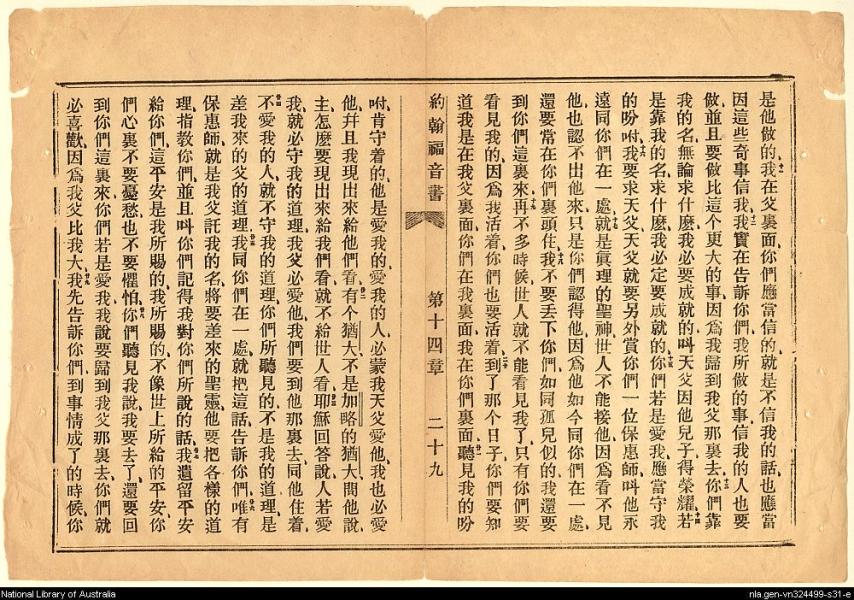 是他做的、我在父裏面、你們應當信的、就是不信我的話、也應當
因這些奇事信我、我實在告訴你們、我所做的事、信我的人也要
做、並且要做比這个更大的事、因爲我歸到我父那裏去、你們靠
我的名、無論求什麼、我必要成就的、叫天父因他兒子得榮耀、若
是靠我的名、求什麼、我必定要成就的、你們若是愛我、應當守我
的吩咐、我要求天父、天父就要另外賞你們一位保惠師、叫他永
遠同你們在一處、就是眞理的聖神、世人不能接他、因爲看不見
他、也認不出他來、只是你們認得他、因爲他如今同你們在一處、
還要常在你們裏頭住、我不要丟下你們、如同孤兒似的、我還要
到你們這裏來、再不多時候、世人就不能看見我了、只有你們要
看見我的、因爲我活着、你們也要活着、到了那个日子、你們要知
道我是在我父裏面、你們在我裏面、我在你們裏面、聽見我的吩
約翰福音書
第十四章
二十九
咐、肯守着的、他是愛我的、愛我的人、必蒙我天父愛他、我也必愛
他、幷且我現出來給他們看、有个猶大、不是加略的猶大、問他說、
主怎麼要現出來給我們看、就不給世人看、耶穌回答說、人若愛
我、就必守我的道理、我父必愛他、我們要到他那裏去、同他住着、
不愛我的人、就不守我的道理、你們所聽見的、不是我的道理、是
差我來的父的道理、我同你們在一處、就把這話告訴你們、唯有
保惠師、就是我父託我的名、將要差來的聖靈、他要把各樣的道
理指教你們、並且叫你們記得我對你們所說的話、我遺留平安
給你們、這平安是我所賜的、我所賜的、不像世上所給的平安、你
們心裏不要憂愁、也不要懼怕、你們聽見我說、我要去了、還要回
到你們這裏來、你們若是愛我、我說要歸到我父那裏去、你們就
必喜歡、因爲我父比我大、我先告訴你們、到事情成了的時候、你
National Library of Australia
nla.gen-vn324499-s31-e